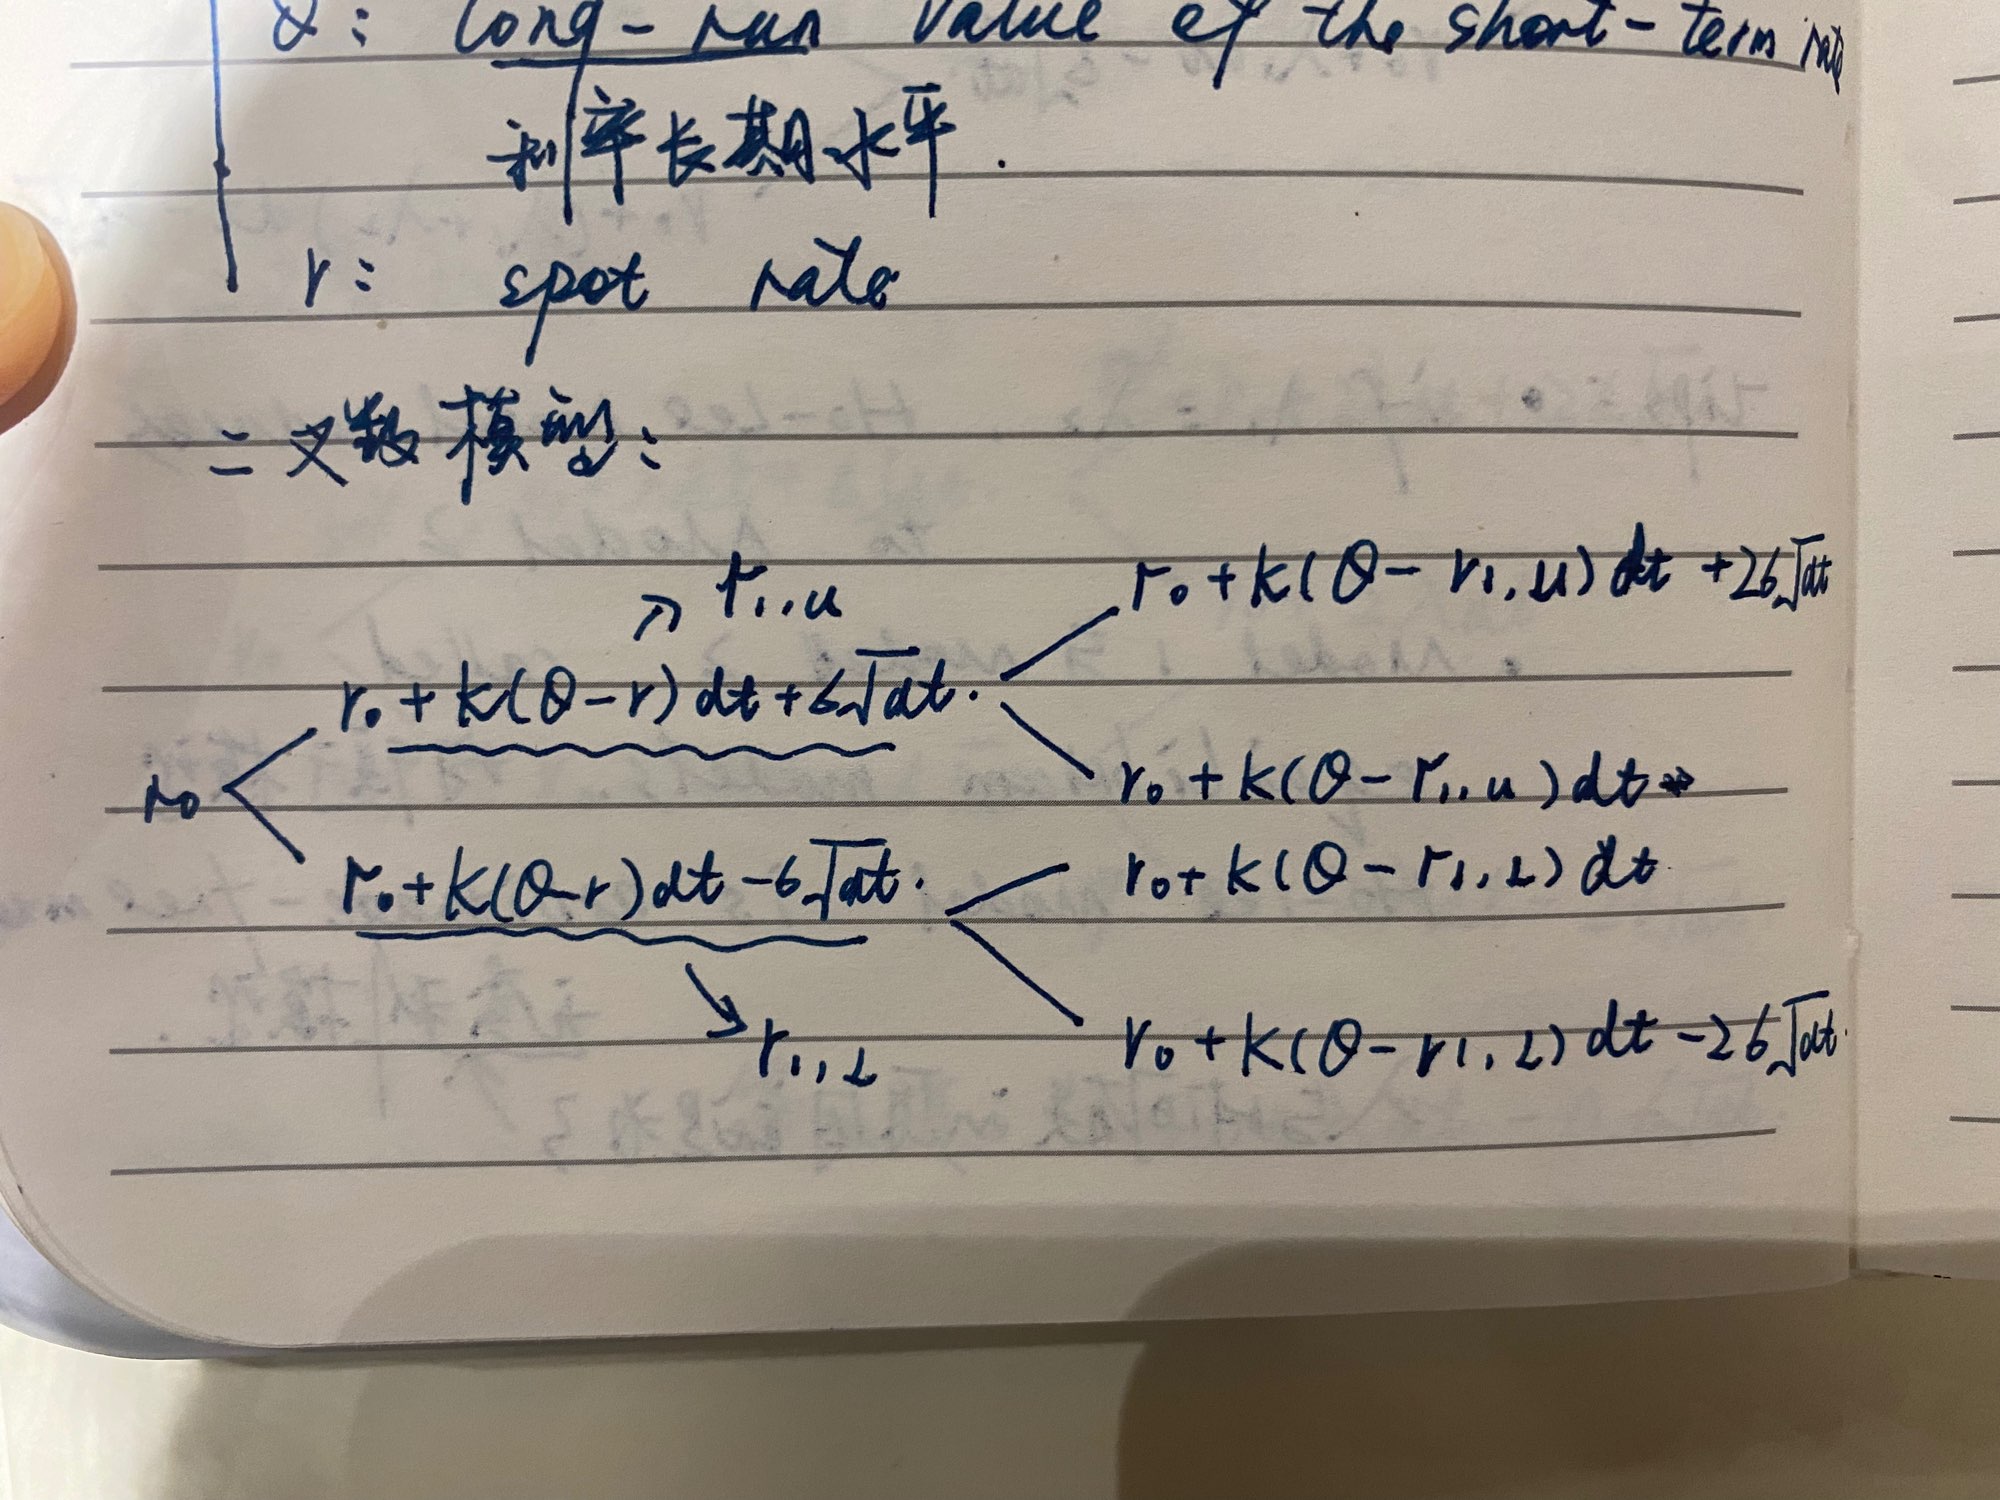 θ: long-run value of the short-term rate
利率长期水平.
r: spot rate
二叉数模型:
↗ r₁,u
r₀+k(θ-r₁,u)dt+2σ√dt
r₀+k(θ-r)dt+σ√dt.
r₀+k(θ-r₁,u)dt
r₀
r₀+k(θ-r)dt-σ√dt.
r₀+k(θ-r₁,L)dt
r₀+k(θ-r₁,L)dt-2σ√dt.
↘ r₁,L